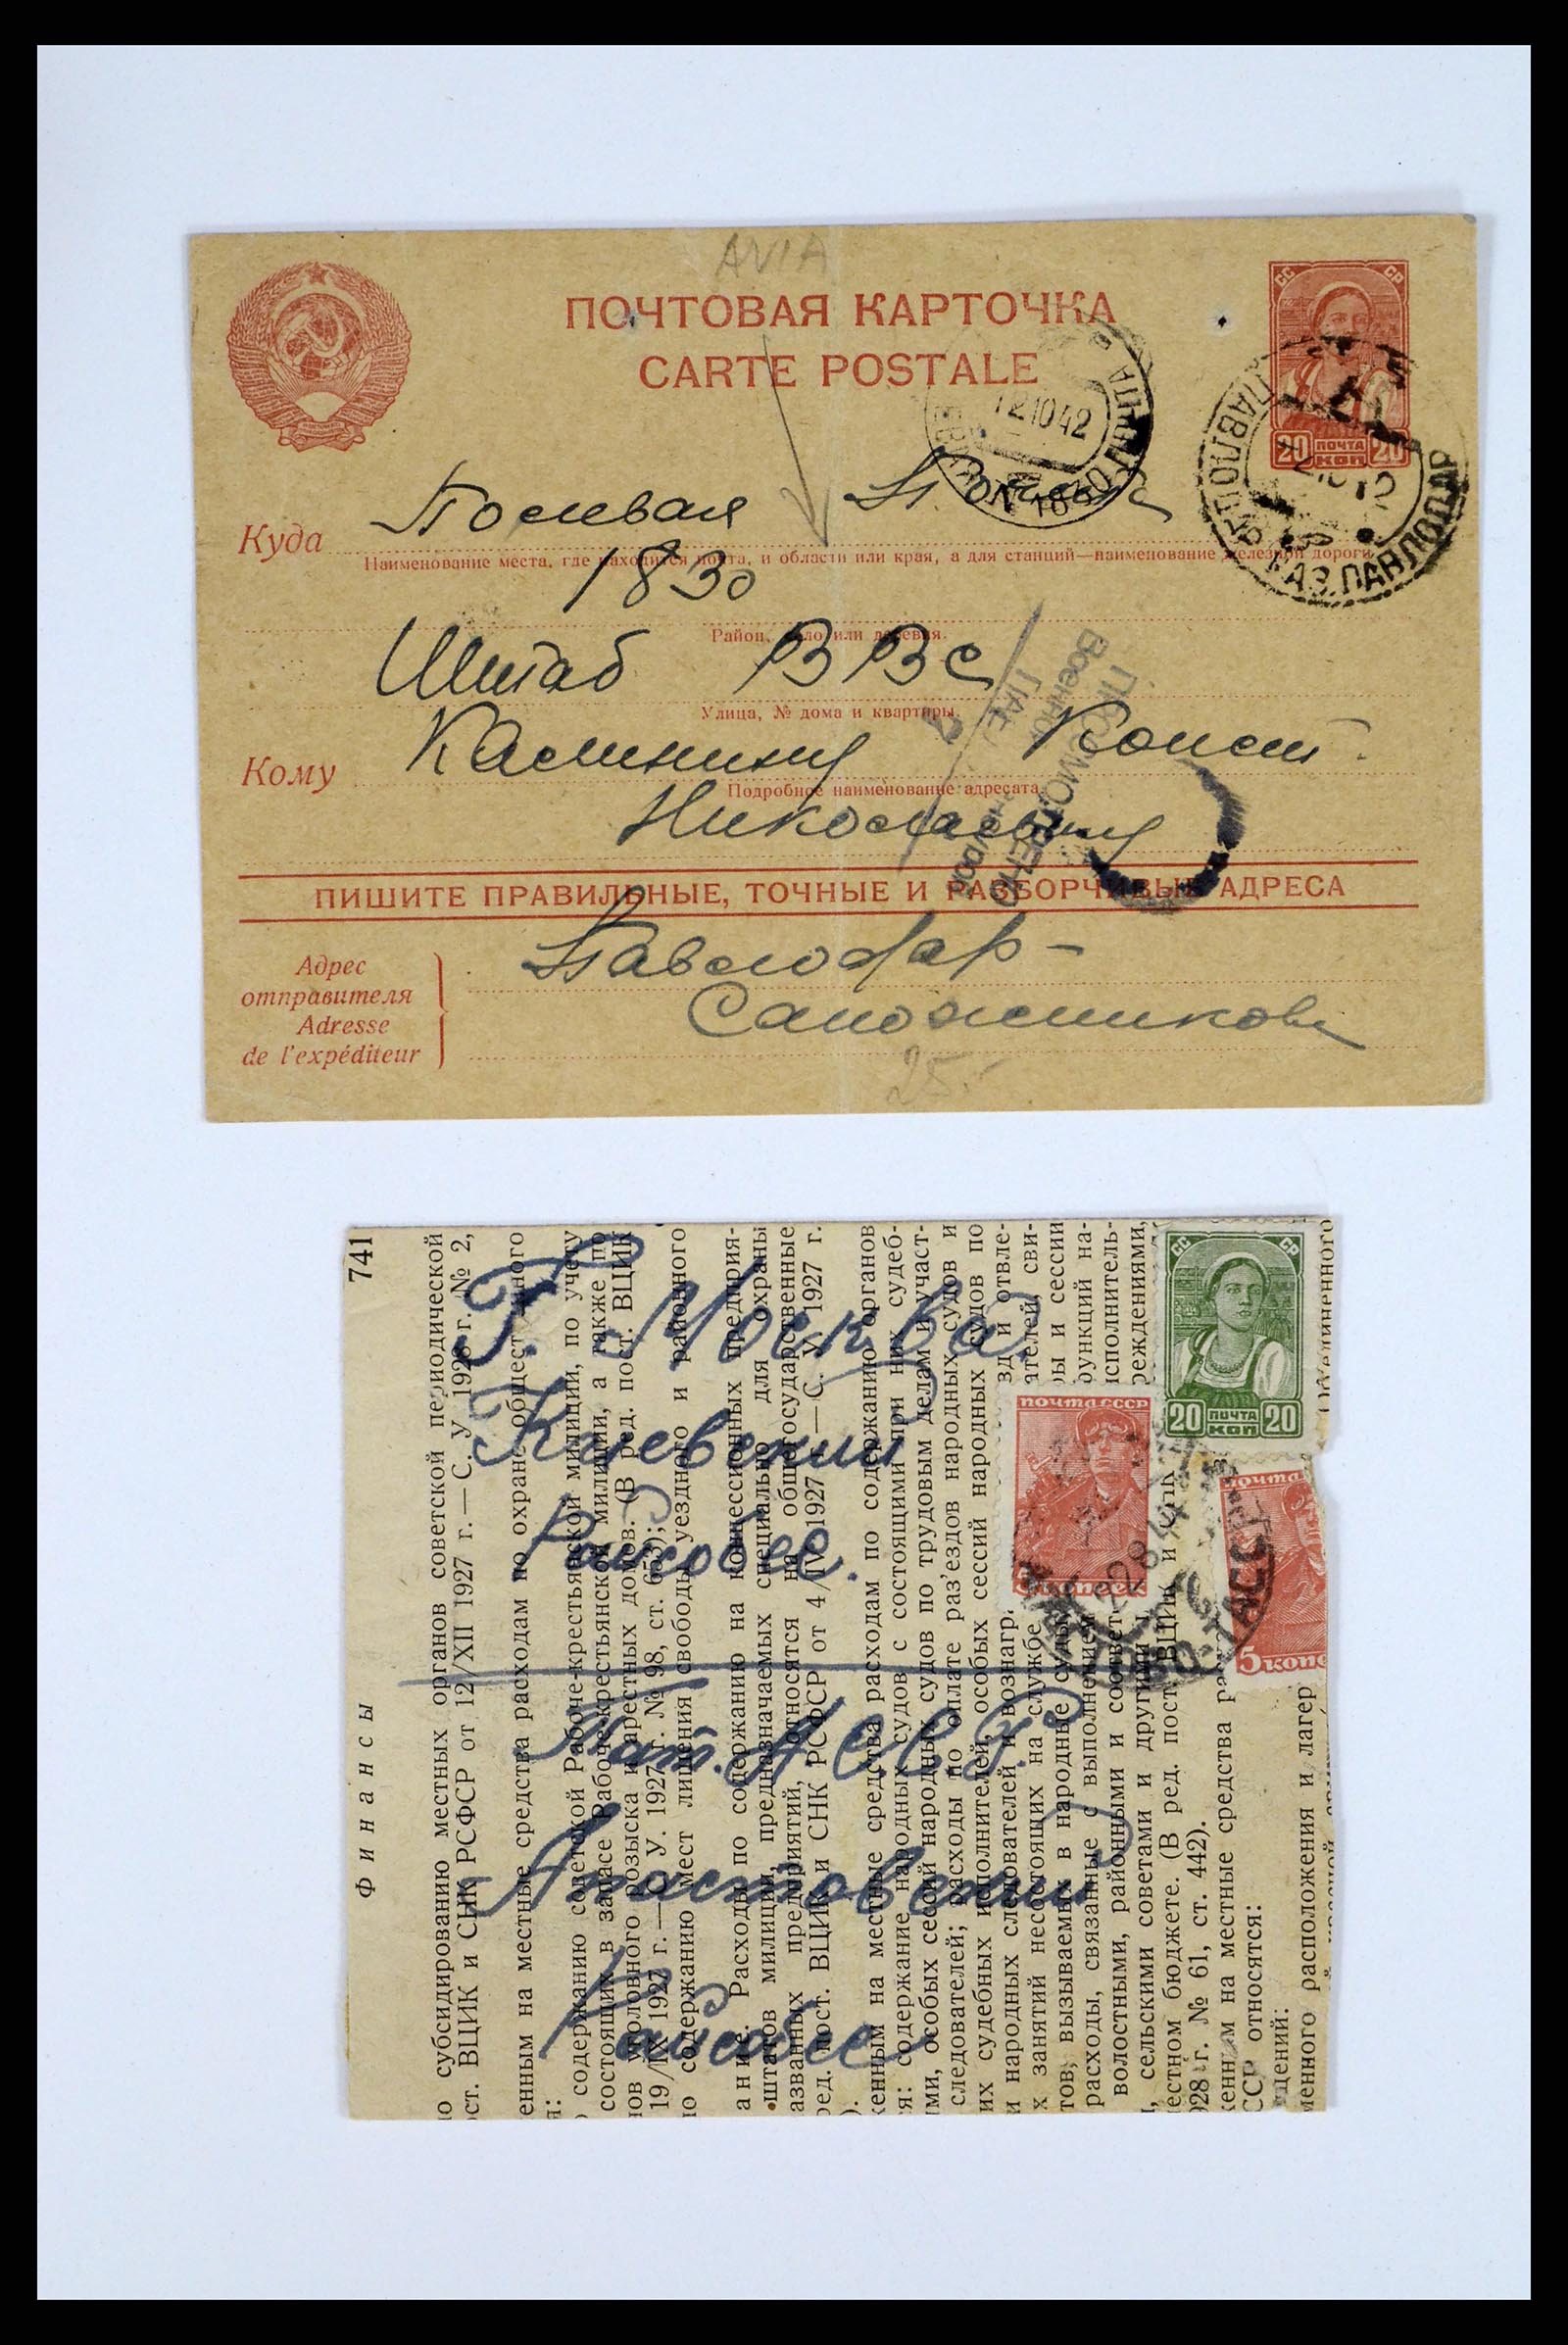 AVIA
ПОЧТОВАЯ КАРТОЧКА
CARTE POSTALE
СС СР
20 ПОЧТА КОП 20
12 10 42
1830
ПАВЛОДАР
КАЗ. ПАВЛОДАР
Куда Полевая Почта
Наименование места, где находится почта, и области или края, а для станций—наименование железной дороги
1830
Район, село или деревня.
Штаб ВВС
Улица, № дома и квартиры.
Кому Калинину Конст.
Подробное наименование адресата
Николаевичу
ПРОСМОТРЕНО
Военной
ПИШИТЕ ПРАВИЛЬНЫЕ, ТОЧНЫЕ И РАЗБОРЧИВЫЕ АДРЕСА
Адрес
отправителя
Adresse
de l'expéditeur
Павлодар-
Сапожникова
25.-
741
Финансы
субсидированию местных органов советской периодической
ст. ВЦИК и СНК РСФСР от 12/XII 1927 г.—С. У. 1928 г. № 2,
енным на местные средства расходам по охране общественного
я:
содержанию советской Рабоче-крестьянской милиции, по учету
состоящих в запасе Рабоче-крестьянской милиции, а также по
нов уголовного розыска и арестных домов. (В ред. пост. ВЦИК
19/IX 1927 г.—С. У. 1927 г. № 98, ст. 653);
о содержанию мест лишения свободы уездного и районного
ание. Расходы по содержанию на концессионных предприя-
штатов милиции, предназначаемых специально для охраны
азванных предприятий, относятся на общегосударственные
ред. пост. ВЦИК и СНК РСФСР от 4/IV 1927 г.—С. У. 1927 г.
).
женным на местные средства расходам по содержанию органов
ся: содержание народных судов с состоящими при них судеб-
ями, особых сессий народных судов по трудовым делам и участ-
следователей; расходы по оплате раз'ездов народных судов и
их судебных исполнителей, особых сессий народных судов по
и народных следователей и вознагр зд и отвле-
х занятий несостоящих на службе ателей, сви-
тов, вызываемых в народные суды ры и сессии
расходы, связанные с выполнением функций на-
волостными, районными и соответ исполнитель-
, сельскими советами и другими реждениями,
естном бюджете. (В ред. пост. ВЦИК и
928 г. № 61, ст. 442).
женным на местные средства ра
ССР относятся:
дений:
менного расположения и лагер
Г. Москва.
Киевский
Райсобес.
Тат. АССР.
Апастовский
Райсобес
СС СР
20 ПОЧТА КОП 20
ПОЧТА СССР
5 копеек
почта
5 копе
ТАССР